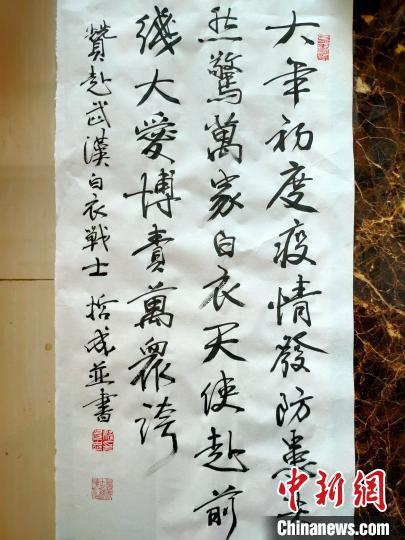 大年初度疫情發防患未
然驚萬家白衣天使赴前
綫大愛博萬眾誇
贊赴武漢白衣戰士 哲成並書
中新网
www.chinanews.com